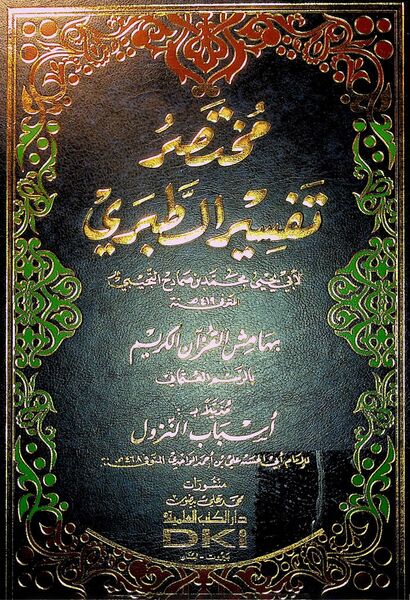 مختصر
تفسير الطبري
لأبي يحيى محمد بن صمادح التجيبي
المتوفى ٤١٩ هـ سنة
بهامش القرآن الكريم
بالرسم العثماني
مذيلا بـ
أسباب النزول
للإمام أبي الحسن علي بن أحمد الواحدي المتوفى ٤٦٨ هـ سنة
منشورات
محمد علي بيضون
دار الكتب العلمية
DKi
بيروت - لبنان